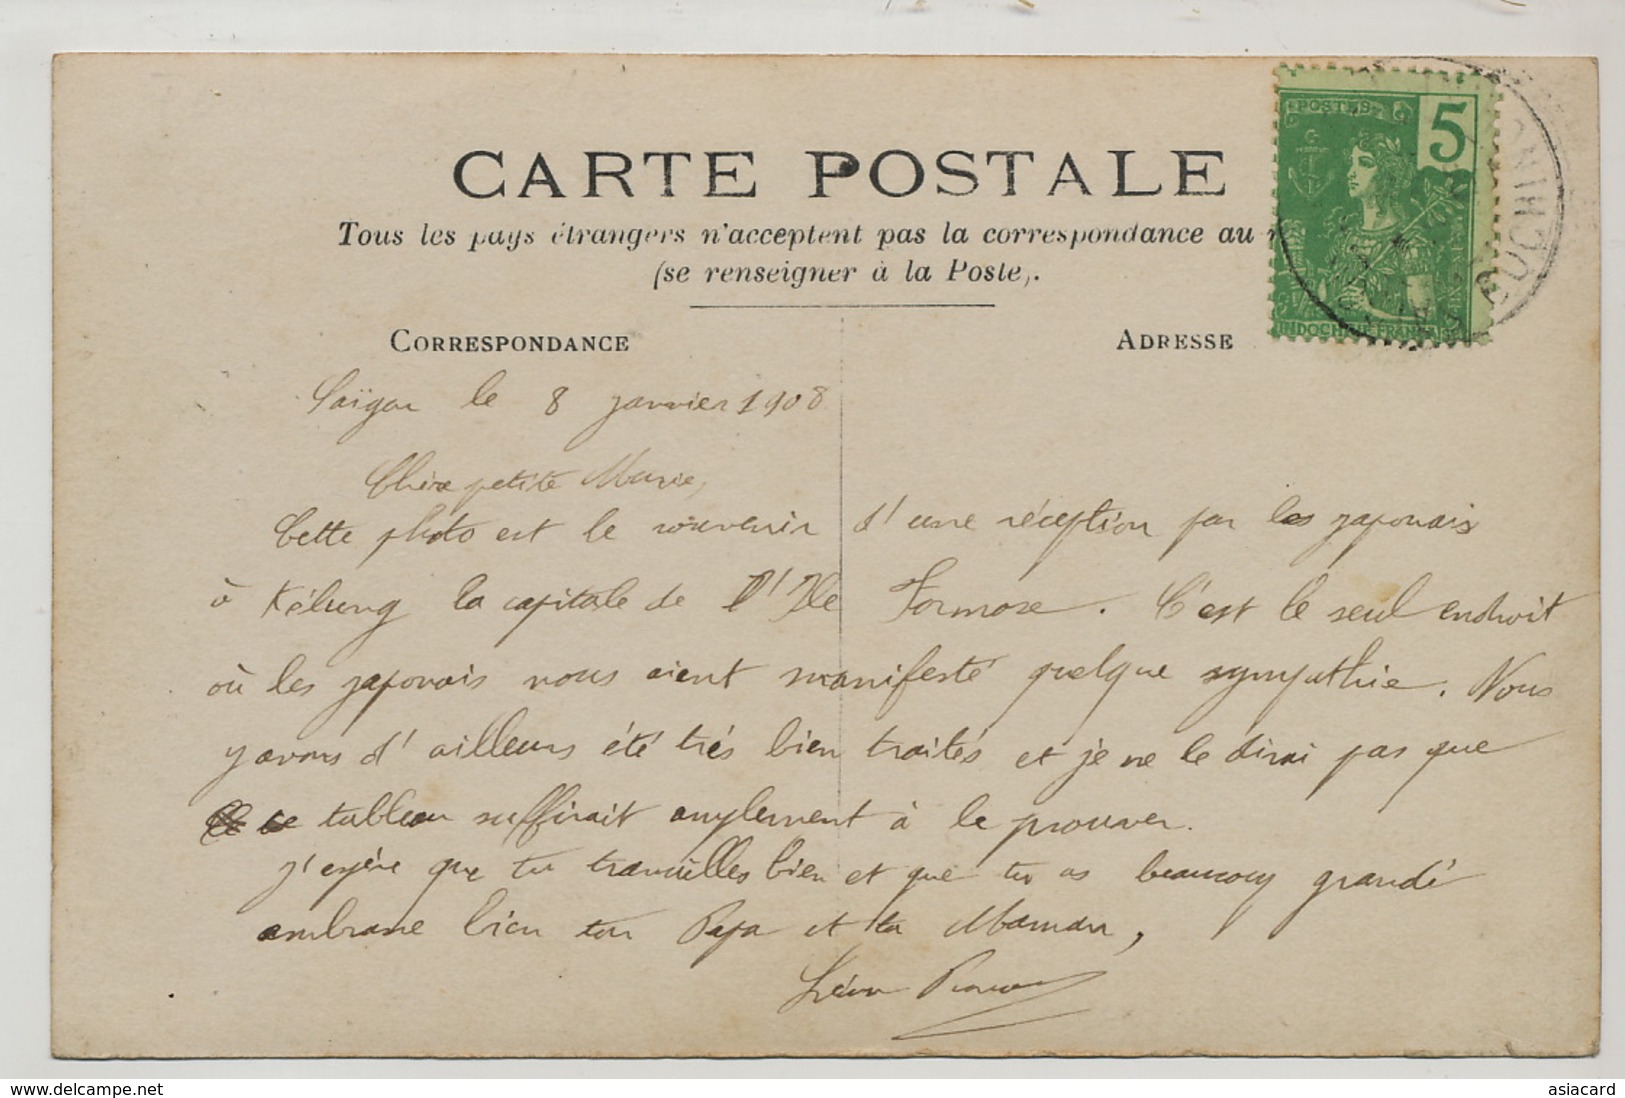 CARTE POSTALE
POSTES
5
INDOCHINE FRANÇAISE
Tous les pays étrangers n'acceptent pas la correspondance au
(se renseigner à la Poste).
CORRESPONDANCE
ADRESSE
COCHINCH
Saïgon le 8 janvier 1908
Chère petite Marie,
Cette photo est le souvenir d'une réception par les japonais
à Kélung la capitale de l'Ile Formose. C'est le seul endroit
où les japonais nous aient manifesté quelque sympathie. Nous
y avons d'ailleurs été très bien traités et je ne le dirai pas que
ce tableau suffirait amplement à le prouver.
J'espère que tu travailles bien et que tu as beaucoup grandi
embrasse bien ton Papa et ta Maman,
Léon
www.delcampe.net
asiacard